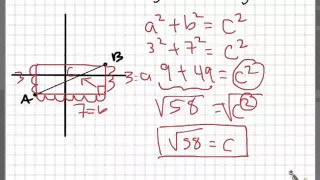 a² + b² = c²
3² + 7² = c²
9 + 49 = c²
√58 = √c²
√58 = c
B
3 3 = a
c
A
7 = b